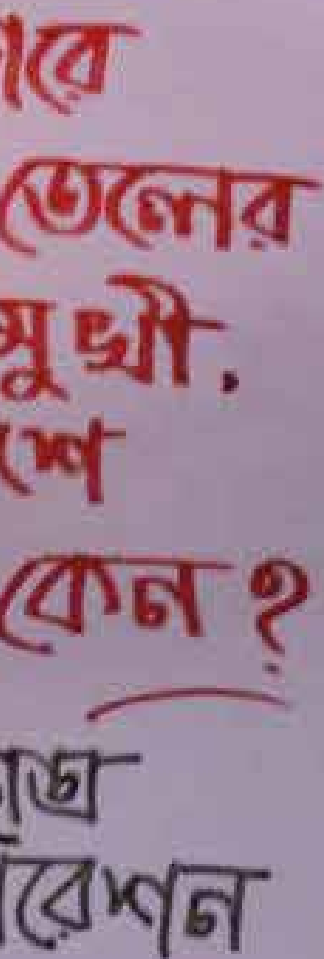 ারে
তেলের
মুখী,
শে
কেন?
ূড
রেশন